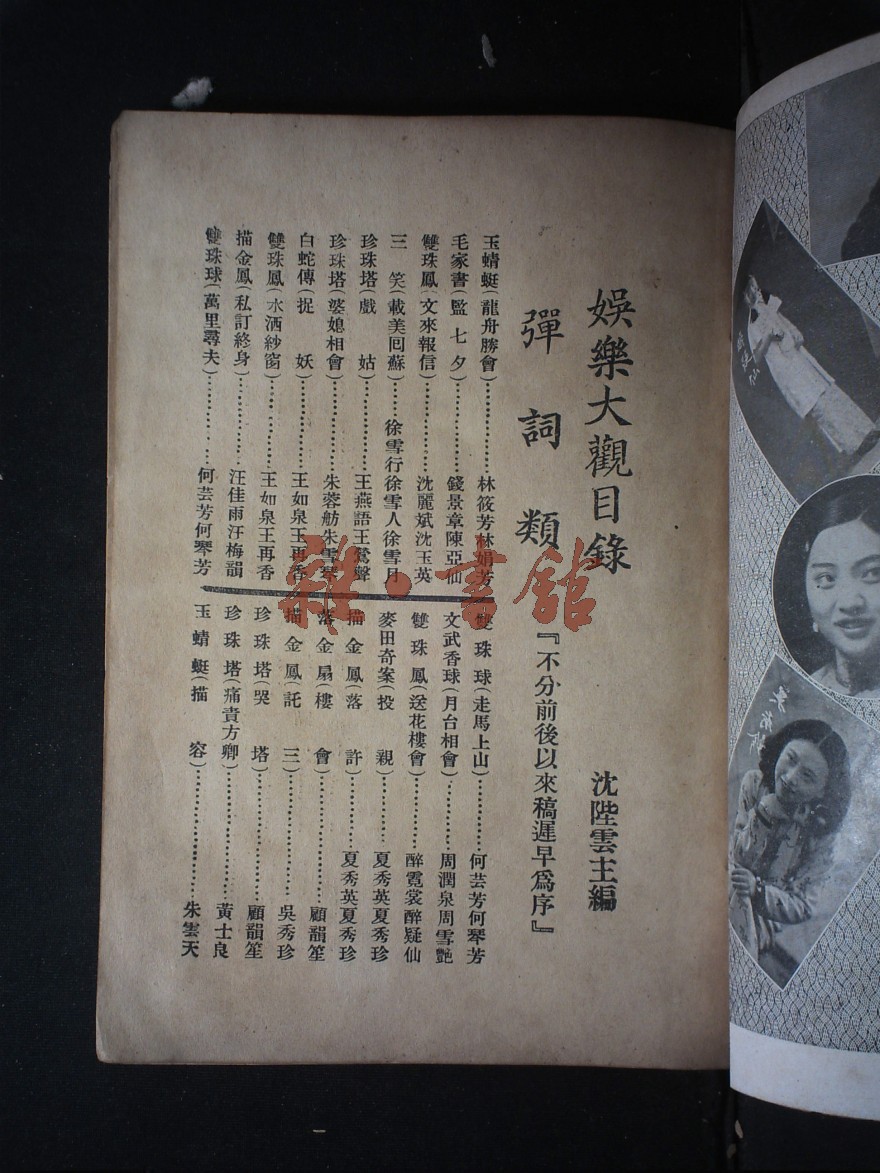 娛樂大觀目錄
沈陛雲主編
彈詞類
『不分前後以來稿遲早爲序』
玉蜻蜓(龍舟勝會)…………林筱芳林娟芳
毛家書(監七夕)…………錢景章陳亞仙
雙珠鳳(文來報信)…………沈麗斌沈玉英
三笑(載美囘蘇)……徐雪行徐雪人徐雪月
珍珠塔(戲姑)…………王燕語王鶯聲
珍珠塔(婆媳相會)…………朱蓉舫朱雪琴
白蛇傳(捉妖)…………王如泉王再香
雙珠鳳(水洒紗窗)…………王如泉王再香
描金鳳(私訂終身)…………汪佳雨汪梅韻
雙珠球(萬里尋夫)…………何芸芳何琴芳
雙珠球(走馬上山)…………何芸芳何琴芳
文武香球(月台相會)…………周潤泉周雪艷
雙珠鳳(送花樓會)…………醉霓裳醉疑仙
麥田奇案(投親)…………夏秀英夏秀珍
描金鳳(落許)…………夏秀英夏秀珍
落金扇(樓會)…………顧韻笙
描金鳳(託三)…………吳秀珍
珍珠塔(哭塔)…………顧韻笙
珍珠塔(痛責方卿)…………黃士良
玉蜻蜓(描容)…………朱雲天
雜·書館